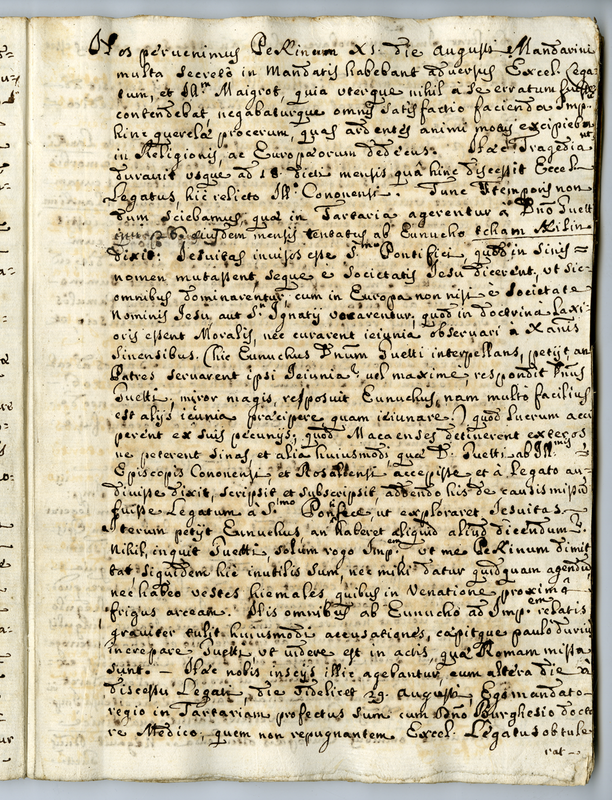 Nos pervenimus Pekinum XI. die Augusti Mandarini
multa secretò in Mandatis habebant adversus Excel. Lega-
tum, et Ill.m Maigrot, quia uterque nihil à se erratum fuisse
contendebat, negabaturque omnis satisfactio facienda Imp.
hinc querelæ procerum, quas ardentes animi motus excipiebant
in Religionis, ac Europæorum dedecus. Hæc Tragedia
duravit usque ad 18 dicti mensis quâ hinc discessit Excel.
Legatus, hic relicto Ill.o Cononensi. Tunc temporis non
dum sciebamus, quæ in Tartaria agerentur à Dno Guetti
ejusdem mensis tentatus ab Eunucho tcham Kilin
dixit: Jesuitas invisos esse S.mo Pontifici, quod in Sinis
nomen mutassent, seque è Societatis Jesu dicerent, ut sic
omnibus dominarentur, cum in Europa non nisi è Societate
Nominis Jesu aut S.ti Ignatij vocarentur, quod in doctrina laxi-
oris essent Moralis, nec curarent ieiunia observari à Xanis
Sinensibus. (hic Eunuchus Dnum Guetti interpellans, petijt, an
Patres servarent ipsi Jeiunia? vel maximè, respondit Dnus
Guetti, miror magis, resposuit Eunuchus, nam multò facilius
est alijs ieiunia præcipere quam ieiunare.) quod lucrum acci
perent ex suis pecunijs, quod Macaenses detinerent exteros
ne peterent Sinas et alia huiusmodi, quæ D. Guetti ab Ill.mis
Episcopis Cononensi, et Rosaliensi accepisse et à Legato au-
divisse dixit, scripsit et subscripsit addendo his de causis missum
fuisse Legatum à S.mo Pontifice, ut exploraret Jesuitas.
Iterum petijt Eunuchus, an haberet aliquid aliud dicendum?
Nihil, inquit Guetti, solum rogo Imp.em ut me Pekinum dimit
tat, siquidem hic inutilis sum, nec mihi datur quidquam agendum
nec habeo vestes hiemales, quibus in Venatione proximâ
frigus arceam. His omnibus ab Eunucho ad Imp.em relatis
graviter tulit huiusmodi accusationes, cæpitque paulò durius
increpare Guetti, ut videre est in actis, quæ Romam missa
sunt. — Hæc nobis inscijs illic agebantur, cum altera die à
discessu Legati, die videlicet 29. Augusti, Ego mandato
regio in Tartariam profectus sum cum Dno Burghesio docto
re Medico, quem non repugnantem Excel. Legatus obtule
rat